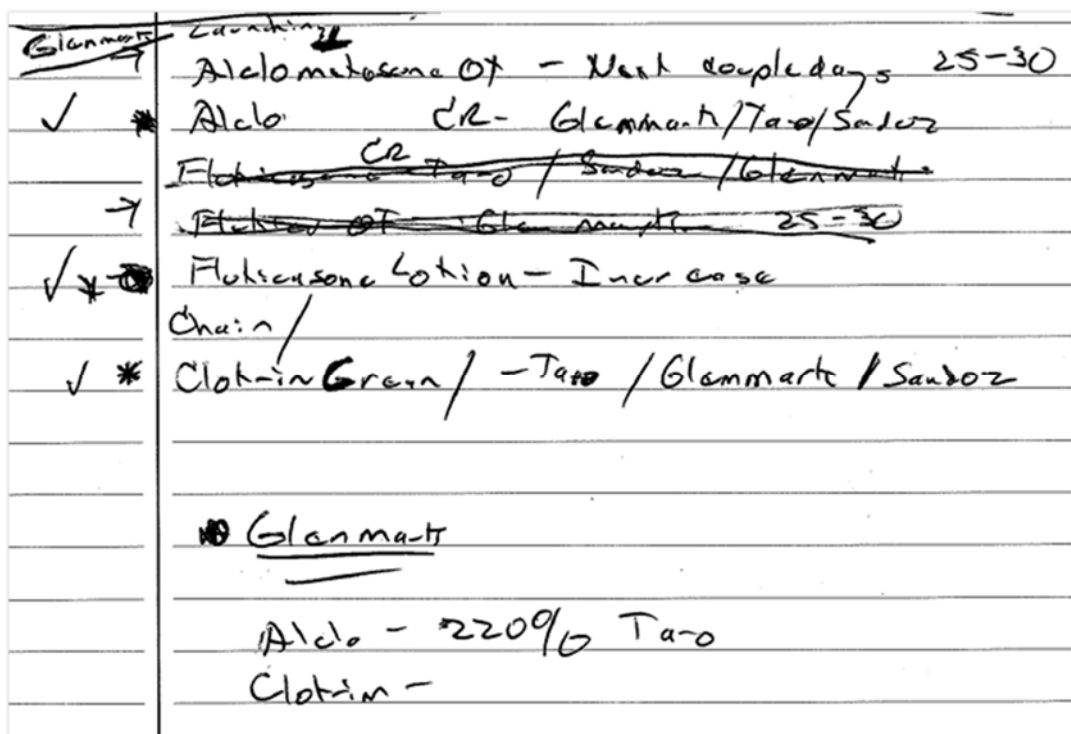 Glenmark Launching
→ Alclometasone OT - Next couple days 25-30
✓ * Alclo CR- Glenmark/Taro/Sandoz
Fluticasone CR Taro / Sandoz / Glenmark
→ Fluticas OT Glenmark 25-30
✓ * Fluticasone Lotion - Increase
Chain /
✓ * Clotrim Cream / - Taro / Glenmark / Sandoz
* Glenmark
Alclo - 220% Taro
Clotrim -